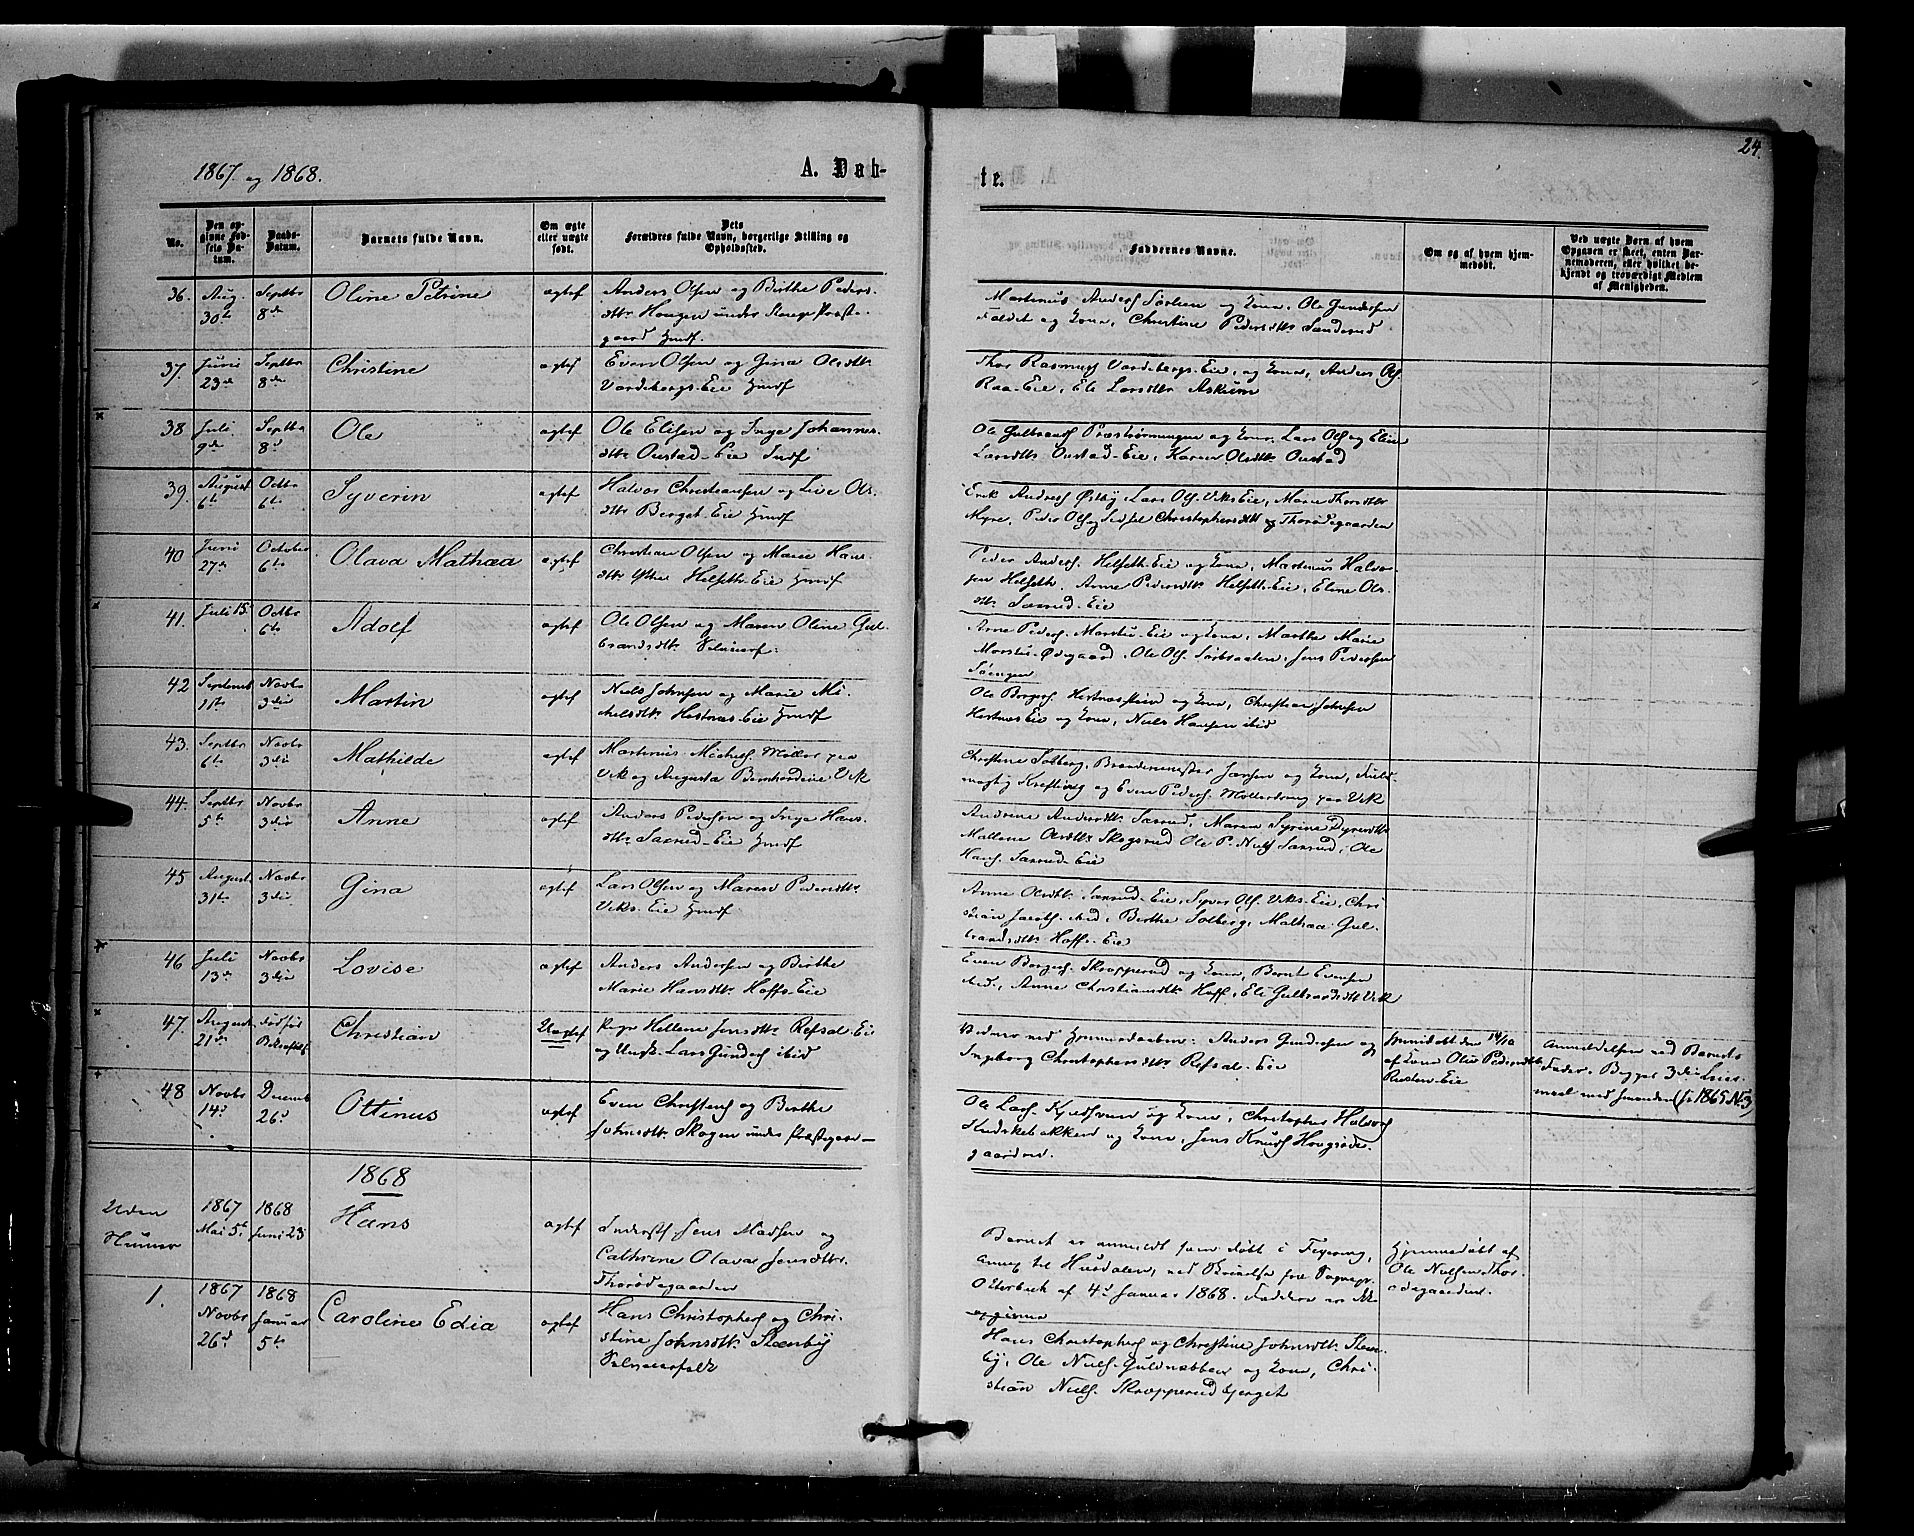 1867 og 1868.
A. Døb-
te.
24.
No.
Den op-
givne Fød-
sels Da-
tum.
Daabs-
Datum.
Barnets fulde Navn.
Om ægte
eller uægte
født.
Dets
Forældres fulde Navn, borgerlige Stilling og
Opholdssted.
Faddernes Navne.
Om og af hvem hjem-
medøbt.
Ved uægte Børn af hvem
Opgaven er skeet, enten Bar-
nemoderen, eller hvilket be-
kjendt og troværdigt Medlem
af Menigheden.
36. Aug. 30te Septbr 8de Oline Petrine ægtef
Anders Olsen og Birthe Peders-
dtr Haugen under Præste-
gaard
Martinus Anders Sørlien og Kone, Ole Gundersen
Faldet og Kone, Christine Pedersdtr Sanderud
37. Juni 23de Septbr 8de Christine ægtef
Even Olsen og Gina Olsdtr
Vardebergs-Eie
Thor Rasmus Vardebergs-Eie, og Kone, Anders Ols.
Raa-Eie, Eli Larsdtr Askium
38 Juli 9de Septbr 8d Ole ægtef
Ole Elisen og Inge Johannes-
dtr Onstad-Eie Indf
Ole Gulbrands og Kone, Lars Ols og Eline
Larsdtr Onstad-Eie, Karen Olsdtr Onstad
39. August 6te Octbr 6te Syverin ægtef
Halvor Christiansen og Live Ols-
dtr Berget-Eie
Erik Anders Østby, Lars Ols. Viks Eie, Marie Thorsdtr
Myre, Peder Ols og Sidsel Christophersdtr Thorødegaarden
40 Juni 27de October 6te Olava Mathea ægtef
Christian Olsen og Marie Hans-
dtr Helseth-Eie
Peder Anders. Helseth-Eie og Kone, Martinus Halvor-
sen Helseth, Anne Pedersdtr Helseth-Eie, Eline Ols-
dtr Saxrud-Eie
41. Juli 15. Octbr 6te Adolf ægtef
Ole Olsen og Maren Oline Gul-
brandsdtr
Arne Peders. Morstu-Eie og Kone, Marthe Marie
Morstu-Ødegaard, Ole Ols. Jens Pedersen
Søengen
42 Septemb 1ste Novbr 3die Martin ægtef
Niels Johnsen og Marie Mi-
kelsdtr Hestnes-Eie
Ole Borgers. og Kone, Christian Johnsen
Hestnes Eie og Kone, Niels Hansen ibid
43. Septbr 6te Novbr 3die Mathilde ægtef
Martinus Michels. Møller paa
Vik og Augusta Bernhardine Vik
Christine Solberg, Brandemester Jansen og Kone,
og Even Peders. Møllerdreng paa Vik
44. Septbr 5te Novbr 3die Anne ægtef
Anders Pedersen og Inge Hans-
dtr Saxrud-Eie
Andrine Andersdtr Saxrud, Maren Syrine
Mallene Olsdtr Skogsrud Ole P. Niels Saxrud, Ole
Hans. Saxrud-Eie
45 August 31te Novbr 3die Gina ægtef
Lars Olsen og Maren Pedersdtr
Viks-Eie
Anne Olsdtr Saxrud-Eie, Syver Ols. Viks-Eie, Chri
stian Birthe Solberg, Mathea Gul-
brandsdtr Hoffs-Eie
46 Juli 13de Novbr 3die Lovise ægtef
Anders Andersen og Birthe
Marie Hansdtr Hoffs-Eie
Even Borgers. Skropperud og Kone, Bernt Evensen
ibid., Anne Christiansdtr Hoff, Eli Gulbrandsdtr Vik
47. August 21de Christian Uægtef
Pige Hellene Jensdtr Refsal-Eie
og Ungk. Lars Gunders ibid
Vidner ved Hjemmedaaben: Anders Gundersen og
Ingeborg Christophersdtr Refsal-Eie
Hjemmedøbt den 14/10
af Kone Olia Pedersdtr
Anmeldelsen ved Barnets
Fader. Begges 3die Leier-
maal med hinanden (se 1865 N. 3)
48 Novbr 14d Decemb 26d Ottinus ægtef
Even Christens og Birthe
Johnsdtr Skogen under Præstegaar-
Ole Lars. og Kone, Christopher Halvors
og Kone, Jens Knuds Hovgsøde-
gaarden.
1868
Uden
Numer
1867 Mai 5te 1868 Juni 23 Hans ægtef
Inderst Jens Madsen og
Cathrine Olava Jensdtr.
Thorødegaarden
Barnet er anmeldt som døbt i Feiering,
Annex til Hurdalen, ved Skrivelse fra Sognepr.
Otterbech af 4d Januar 1868. Faddere er ikke
opgivne
Hjemmedøbt af
Ole Nielsen Thor-
ødegaarden.
1. 1867 Novbr 26d 1868 Januar 5te Caroline Edia ægtef
Hans Christophers og Chri-
stine Johnsdtr. Stenby
Hans Christophers og Christine Johnsdtr. Sten-
by, Ole Niels. Guldnæbben og Kone, Chri-
stian Niels. Skropperudbjerget